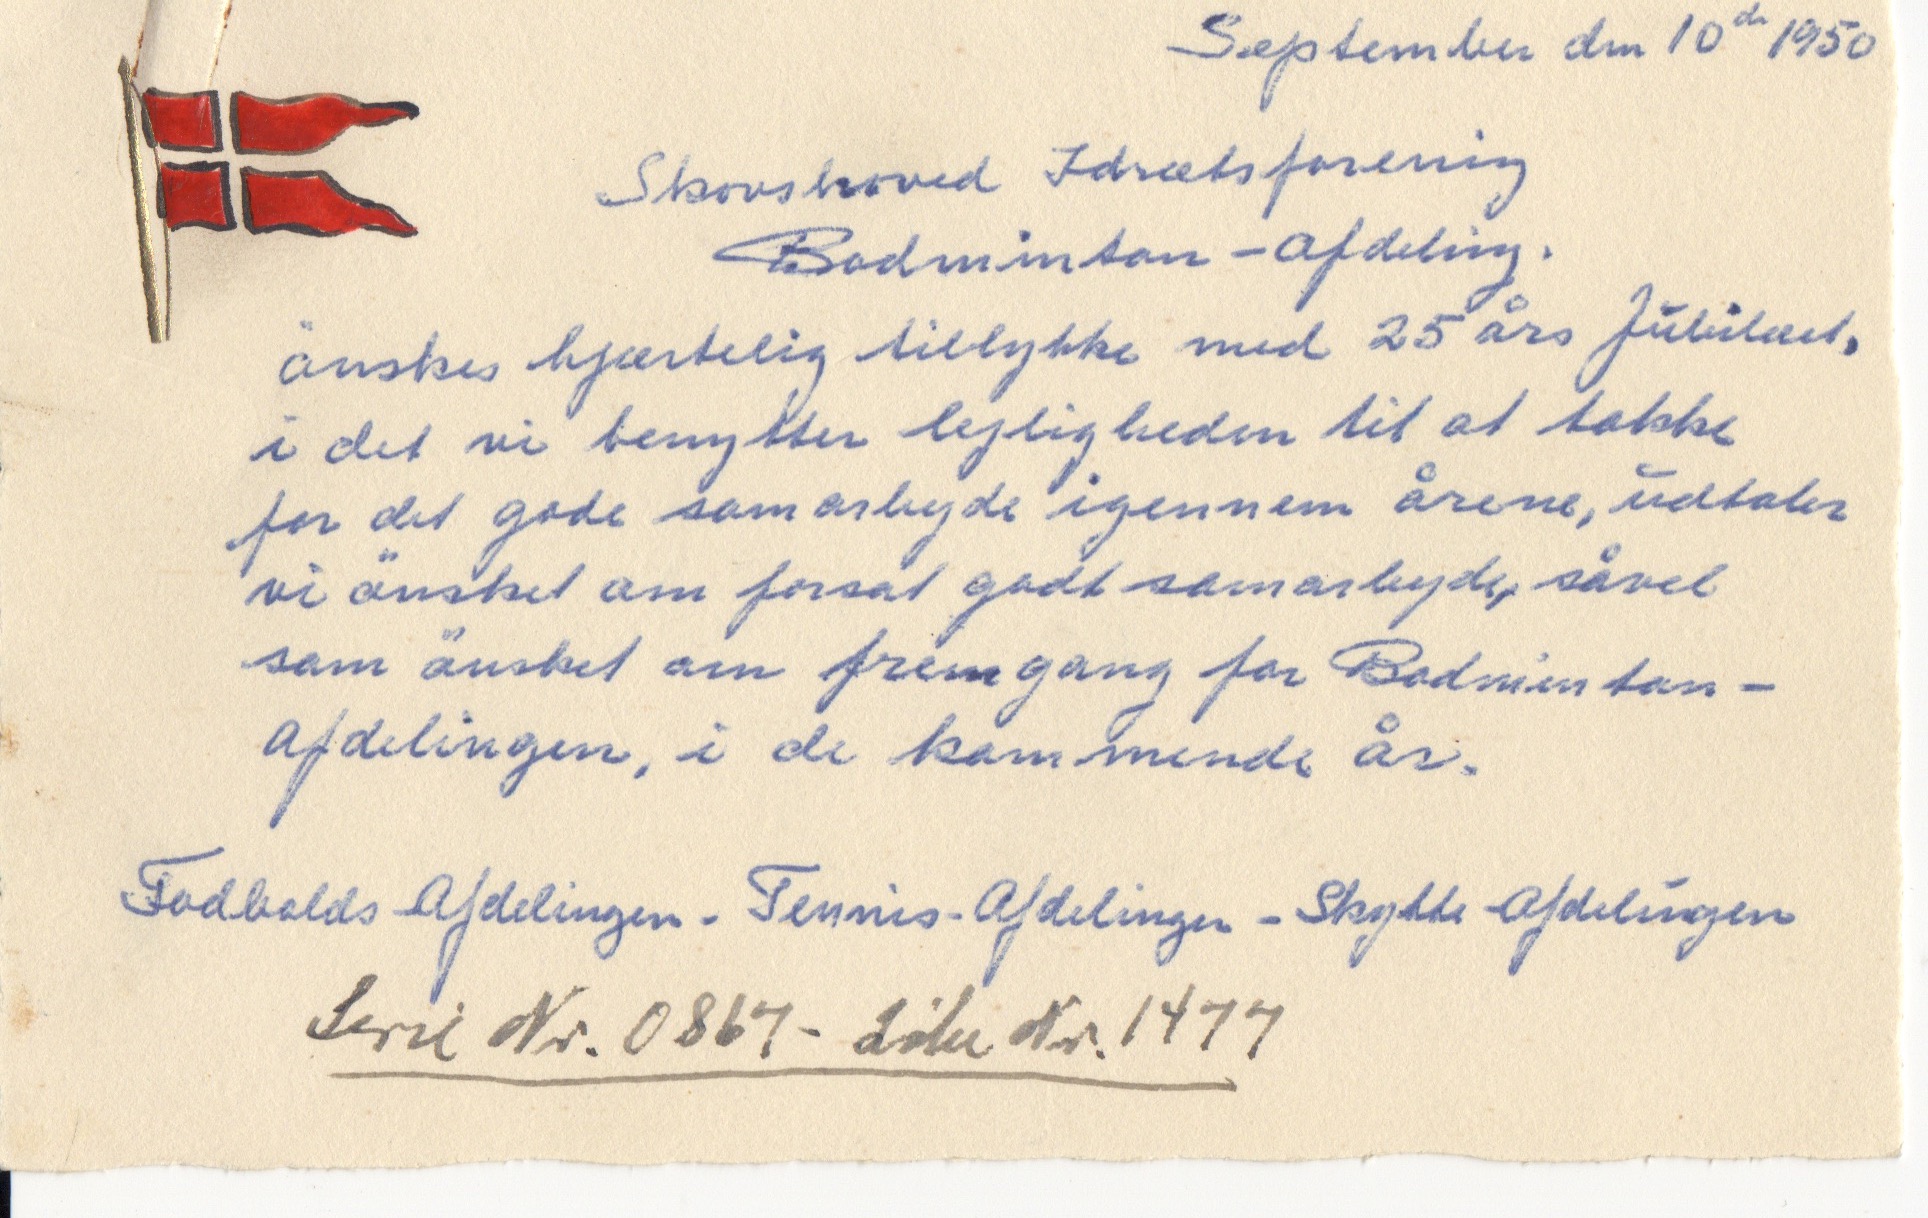 September den 10de 1950
Skovshoved Idrætsforening
Badminton - Afdeling.
önskes hjærtelig tillykke med 25 års Jubilæet,
i det vi benytter lejligheden til at takke
for det gode samarbejde igennem årene, udtaler
vi önsket om forsat godt samarbejde, såvel
som önsket om fremgang for Badminton -
Afdelingen, i de kommende år.
Fodbolds Afdelingen - Tennis - Afdelingen - Skytte Afdelingen
Serie Nr. 0867 - Nr. 1477